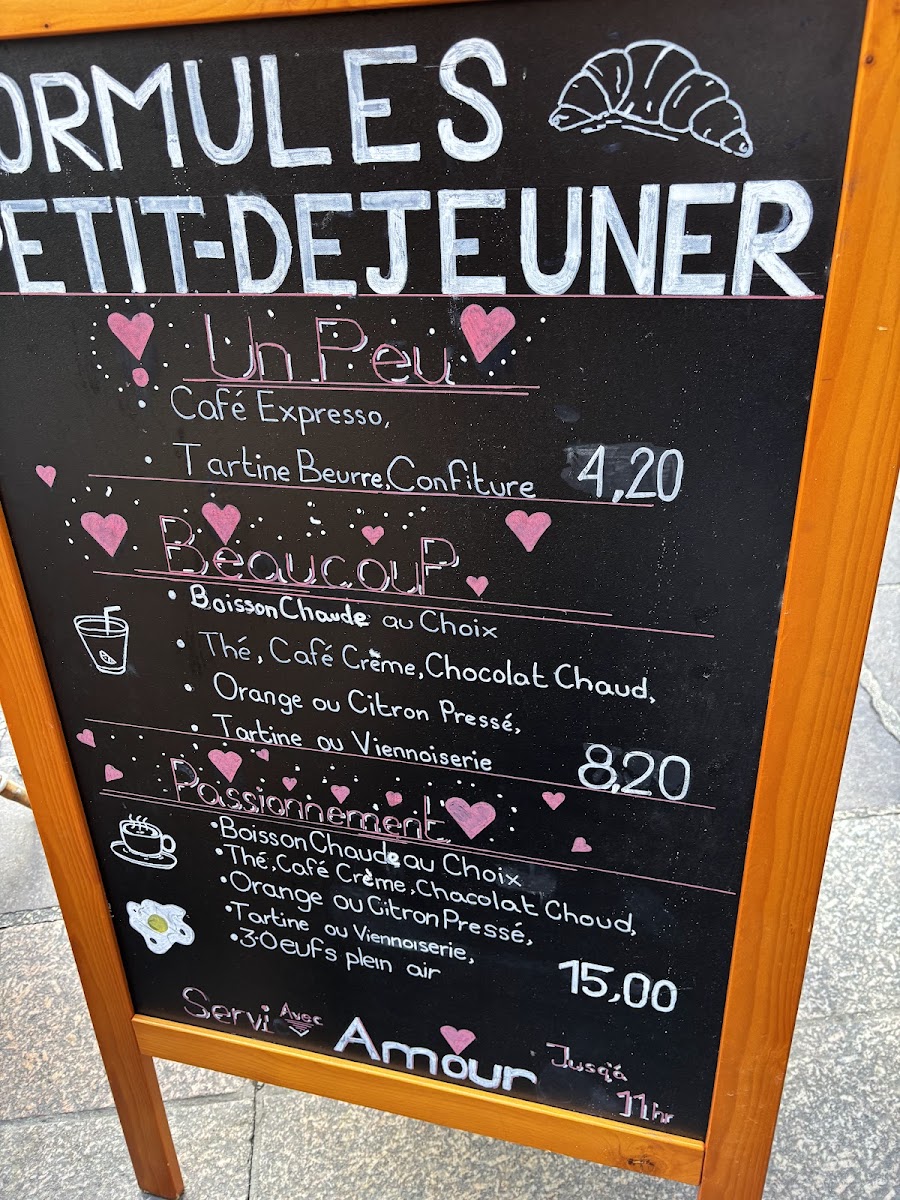 ORMULES
PETIT-DEJEUNER
Un Peu
• Café Expresso,
• Tartine Beurre, Confiture 4,20
Beaucoup
• Boisson Chaude au Choix
• Thé, Café Crème, Chocolat Chaud,
• Orange ou Citron Pressé,
• Tartine ou Viennoiserie 8,20
Passionnement
• Boisson Chaude au Choix
• Thé, Café Crème, Chacolat Choud,
• Orange ou Citron Pressé,
• Tartine ou Viennoiserie,
• 3 Oeufs plein air 15,00
Servi Avec Amour Jusqá
11hr